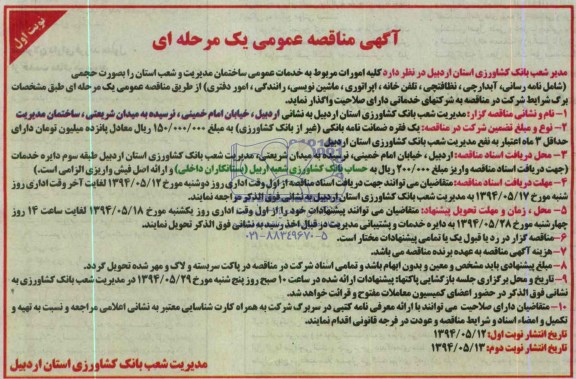 نوبت اول
آگهی مناقصه عمومی یک مرحله ای
مدیر شعب بانک کشاورزی استان اردبیل در نظر دارد کلیه امورات مربوط به خدمات عمومی ساختمان مدیریت و شعب استان را بصورت حجمی
(شامل نامه رسانی، آبدارچی، نظافتچی، تلفن خانه، اپراتوری، ماشین نویسی، رانندگی، امور دفتری) از طریق مناقصه عمومی یک مرحله ای طبق مشخصات
برگ شرایط شرکت در مناقصه به شرکتهای خدماتی دارای صلاحیت واگذار نماید.
۱- نام و نشانی مناقصه گزار: مدیریت شعب بانک کشاورزی استان اردبیل به نشانی اردبیل، خیابان امام خمینی، نرسیده به میدان شریعتی، ساختمان مدیریت
۲- نوع و مبلغ تضمین شرکت در مناقصه: یک فقره ضمانت نامه بانکی (غیر از بانک کشاورزی) به مبلغ ۱۵۰/۰۰۰/۰۰۰ ریال معادل پانزده میلیون تومان دارای
حداقل ۳ ماه اعتبار به نفع مدیریت شعب بانک کشاورزی استان اردبیل
۳- محل دریافت اسناد مناقصه: اردبیل، خیابان امام خمینی، نرسیده به میدان شریعتی، مدیریت شعب بانک کشاورزی استان اردبیل طبقه سوم دایره خدمات
(جهت دریافت اسناد مناقصه واریز مبلغ ۲۰۰/۰۰۰ ریال به حساب بانک کشاورزی شعبه اربیل (بستانکاران داخلی) و ارائه اصل فیش واریزی الزامی است.)
۴- مهلت دریافت اسناد مناقصه: متقاضیان می توانند جهت دریافت اسناد مناقصه از اول وقت اداری روز دوشنبه مورخ ۱۳۹۴/۰۵/۱۲ لغایت آخر وقت اداری روز
شنبه مورخ ۱۳۹۴/۰۵/۱۷ به مدیریت شعب بانک کشاورزی استان اردبیل به نشانی فوق الذکر مراجعه نمایند.
۵- محل، زمان و مهلت تحویل پیشنهاد: متقاضیان می توانند پیشنهادات خود را از اول وقت اداری روز یکشنبه مورخ ۱۳۹۴/۰۵/۱۸ لغایت ساعت ۱۴ روز
چهارشنبه مورخ ۱۳۹۴/۰۵/۲۸ به دایره خدمات و پشتیبانی مدیریت در قبال اخذ رسید به نشانی فوق الذکر تحویل نمایند.
۶- مناقصه گزار در رد یا قبول یک یا تمامی پیشنهادات مختار است.
۷- هزینه آگهی مناقصه به عهده برنده مناقصه می باشد.
۸- مبلغ پیشنهادی باید مشخص و معین و بدون ابهام باشد و تمامی اسناد شرکت در مناقصه در پاکت سربسته و لاک و مهر شده تحویل گردد.
۹- تاریخ و محل برگزاری جلسه بازگشایی پاکتها: پیشنهادات ارائه شده در ساعت ۱۰ صبح روز پنج شنبه مورخ ۱۳۹۴/۰۵/۲۹ در مدیریت شعب بانک کشاورزی به
نشانی فوق الذکر در حضور اعضای کمیسیون معاملات مفتوح و قرائت خواهد شد.
۱۰- متقاضیان دارای صلاحیت می توانند با ارائه معرفی نامه کتبی در سربرگ شرکت به همراه کارت شناسایی معتبر به نشانی اعلامی مراجعه و نسبت به تهیه و
تکمیل و امضاء اسناد و شرایط مناقصه و عودت در فرجه قانونی اقدام نمایند.
تاریخ انتشار نوبت اول: ۱۳۹۴/۰۵/۱۲
تاریخ انتشار نوبت دوم: ۱۳۹۴/۰۵/۱۳
مدیریت شعب بانک کشاورزی استان اردبیل
۰۲۱-۸۸۳۴۹۶۷۰-۵